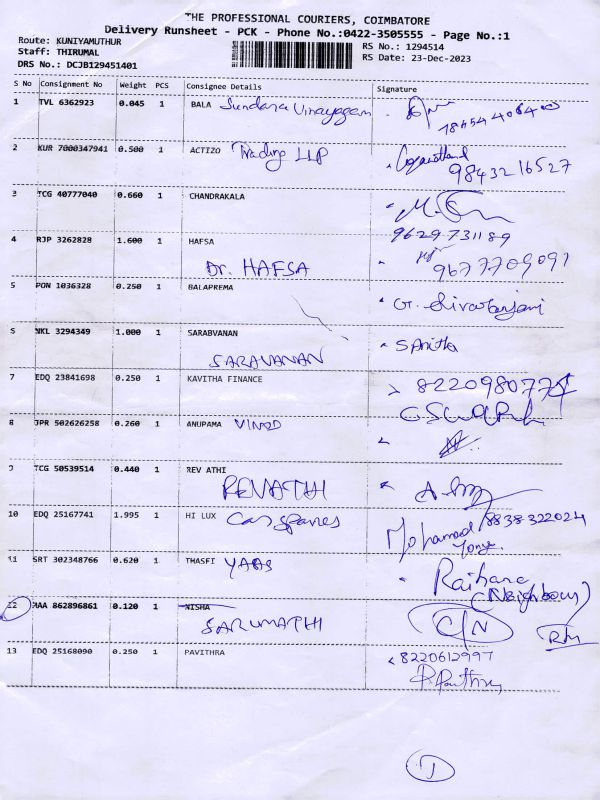 THE PROFESSIONAL COURIERS, COIMBATORE
Delivery Runsheet - PCK - Phone No.:0422-3505555 - Page No.:1
Route: KUNIYAMUTHUR
Staff: THIRUMAL
RS No.: 1294514
DRS No.: DCJB129451401
RS Date: 23-Dec-2023
S No Consignment No Weight PCS Consignee Details Signature
1 TVL 6362923 0.045 1 BALA Sundara Vinayagam
2 KUR 7000347941 0.500 1 ACTIZO Trading LLP
9843216527
3 TCG 40777040 0.660 1 CHANDRAKALA
9629731189
4 RJP 3262828 1.600 1 HAFSA
Dr. HAFSA 9677709091
5 PON 1036328 0.250 1 BALAPREMA
G. Sivaranjani
6 NKL 3294349 1.000 1 SARABVANAN
SARAVANAN
7 EDQ 23841698 0.250 1 KAVITHA FINANCE
8 JPR 502626258 0.260 1 ANUPAMA VINOD
9 TCG 50539514 0.440 1 REV ATHI
REVATHI
10 EDQ 25167741 1.995 1 HI LUX Car spares
Mohamad 8838322024
11 SRT 302348766 0.620 1 THASFI YAAS
Raihana
(Neighbour)
12 MAA 862896861 0.120 1 NISHA
SARUMATHI C/N
13 EDQ 25168090 0.250 1 PAVITHRA 8220612997
1